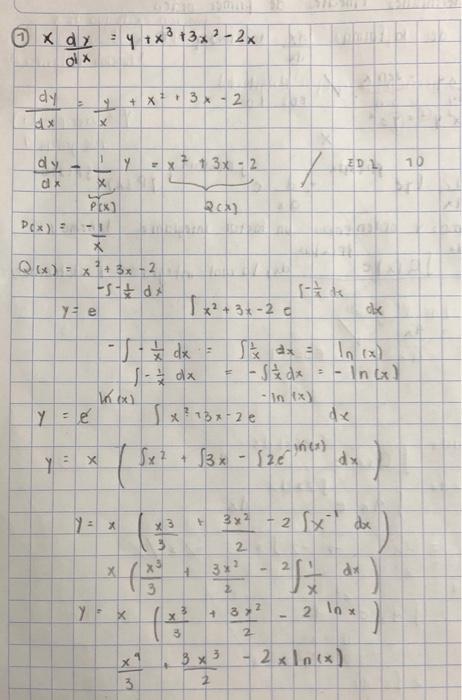 ① x dy/dx = y + x³ + 3x² - 2x
dy/dx = y/x + x² + 3x - 2
dy/dx - 1/x y = x² + 3x - 2 / EDL 1O
P(x) Q(x)
P(x) = -1/x
Q(x) = x² + 3x - 2
y = e^(-∫-1/x dx) ∫ x² + 3x - 2 e^(∫-1/x dx) dx
-∫ -1/x dx = ∫ 1/x dx = ln(x)
∫ -1/x dx = -∫ 1/x dx = -ln(x)
y = e^(ln(x)) ∫ x² + 3x - 2e^(-ln(x)) dx
y = x (∫x² + ∫3x - ∫2e^(-ln(x)) dx)
y = x (x³/3 + 3x²/2 - 2∫x⁻¹ dx)
x (x³/3 + 3x²/2 - 2∫1/x dx)
y = x (x³/3 + 3x²/2 - 2 ln x)
x⁴/3 + 3x³/2 - 2x ln(x)